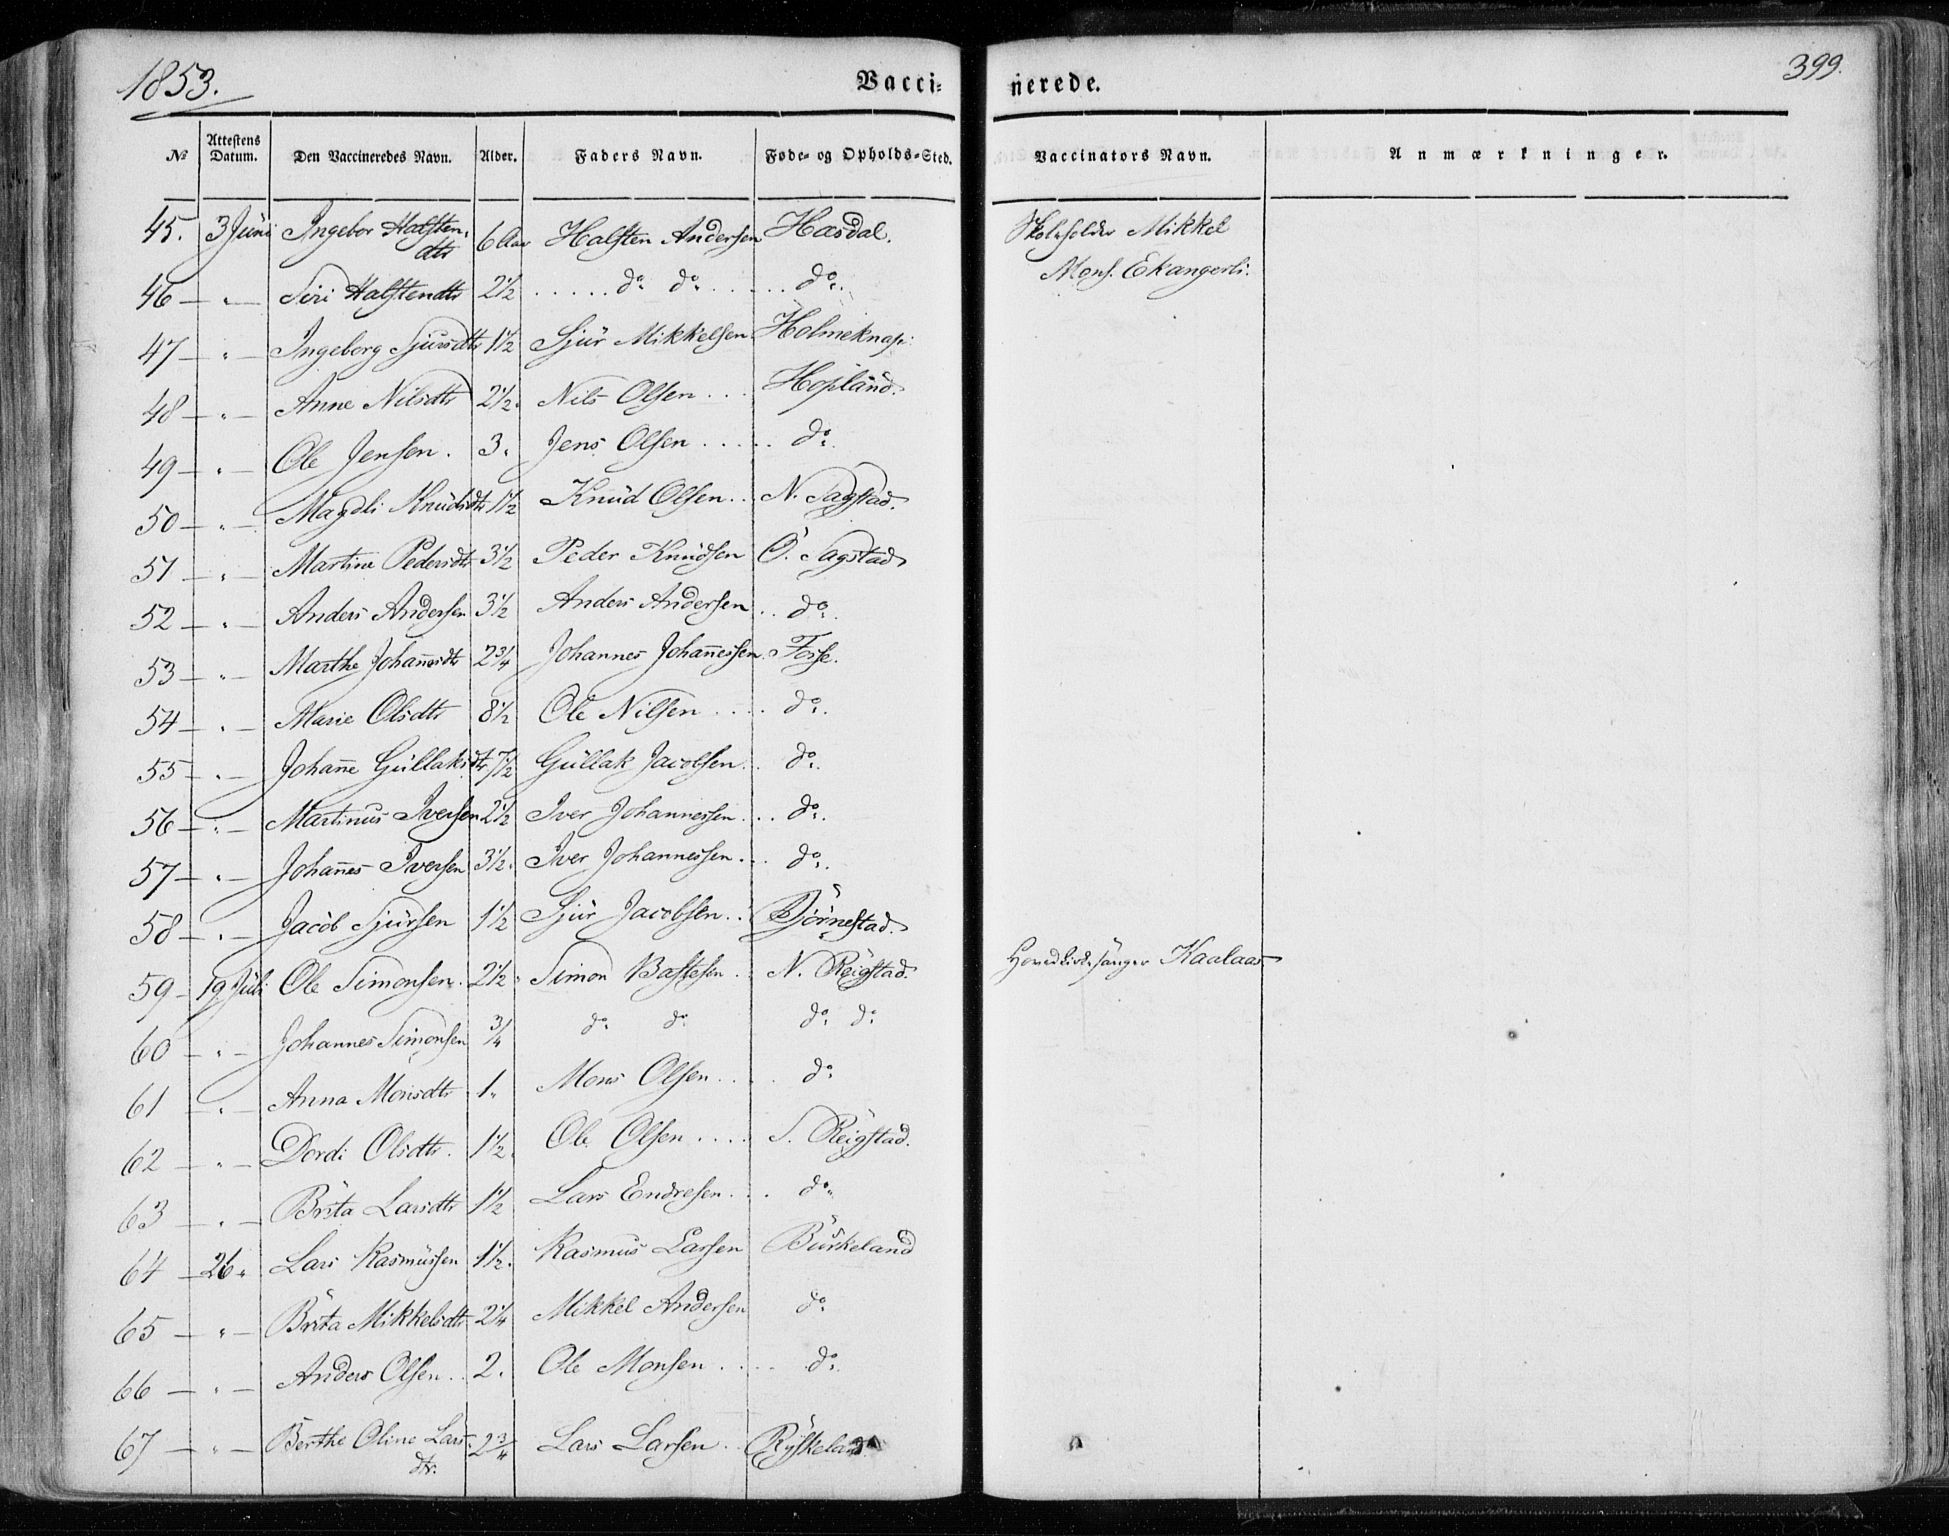 1853. Vacci- nerede. 399.
№ Attestens Datum. Den Vaccineredes Navn. Alder. Faders Navn. Føde- og Opholds-Sted. Vaccinators Navn. Anmærkninger.
45. 3 Juni Ingebor Halsten- 6 Aar Halsten Andersen Hasdal. Skoleholder Mikkel
dtr Mons. Ekangerli.
46 - " - Siri Halstendtr 2 1/2 . . . . . do do . . . . . do.
47 - " - Ingeborg Sjursdtr 1 1/2 Sjur Mikkelsen Holmeknap:
48 - " - Anne Nilsdtr 2 1/2. Nils Olsen . . . Hopland.
49 - " - Ole Jensen. 3. Jens Olsen . . . . . do.
50 - " - Magdli Knudsdtr 1 1/2 Knud Olsen . . N. Sagstad.
51 - " - Martine Pedersdtr 3 1/2 Peder Knudsen Ö. Sagstad
52 - " - Anders Andersen 3 1/2 Anders Andersen . . do.
53 - " - Marthe Johannesdtr 2 3/4 Johannes Johannessen. Fosse.
54 - " - Marie Olsdtr 8 1/2 Ole Nilsen . . . . do.
55 - " - Johanne Gullaksdtr 7 1/2 Gullak Jacobsen . . do.
56 - " - Martinus Iversen 2 1/2 Iver Johannessen . . . do.
57 - " - Johannes Iversen 3 1/2. Iver Johannessen . . . do.
58 - " - Jacob Sjursen 1 1/2 Sjur Jacobsen . . Bjørnestad.
59 - 19 Juli Ole Simonsen. 2 1/2 Simon Bastesen . . N. Reigstad. Hovedkirkesanger Kaalaas
60 - " - Johannes Simonsen 3/4 do do do do
61 - " - Anna Monsdtr 1. Mons Olsen . . . . do
62 - " - Dordi Olsdtr. 1 1/2. Ole Olsen . . . . S. Reigstad.
63 - " - Brita Larsdtr 1 1/2 Lars Endresen . . . do.
64 - 26 " Lars Rasmussen 1 1/2. Rasmus Larsen Burkeland
65 - " - Brita Mikkelsdtr 2 1/4 Mikkel Andersen do
66 - " - Anders Olsen . . 2. Ole Monsen . . . . . do.
67 - " - Berthe Oline Lars- 2 3/4 Lars Larsen . . Ryskeland
dtr.